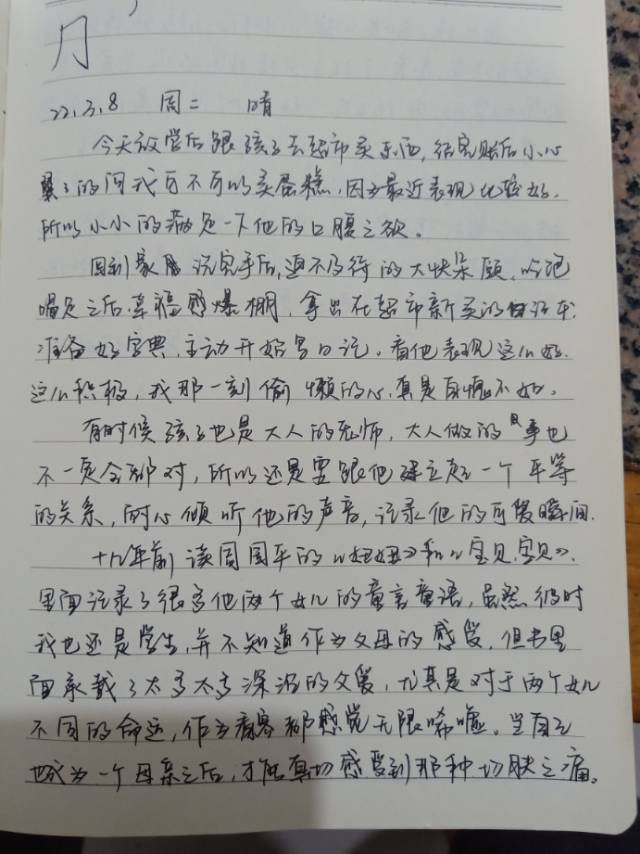 月
22.3.8 周二 晴
今天放学后跟孩子去超市买东西,结完账后小心
翼翼的问我可不可以买蛋糕,因为最近表现比较好,
所以小小的满足一下他的口腹之欲。
回到家 洗完手后,迫不及待的大快朵颐,吃饱
喝足之后幸福感爆棚,拿出在超市新买的日记本
准备好字典,主动开始写日记。看他表现这么好,
这么积极,我那一刻偷懒的心,真是自愧不如。
有时候孩子也是大人的老师,大人做的事也
不一定全都对,所以还是要跟他建立起一个平等
的关系,耐心倾听他的声音,记录他的可爱瞬间。
十几年前读周国平的《妞妞》和《宝贝,宝贝》,
里面记录了很多他两个女儿的童言童语,虽然彼时
我也还是学生,并不知道作为父母的感受,但书里
面承载了太多太多深沉的父爱,尤其是对于两个女儿
不同的命运,作为看客都感觉无限唏嘘。当自己
也成为一个母亲之后,才能真切感受到那种切肤之痛。